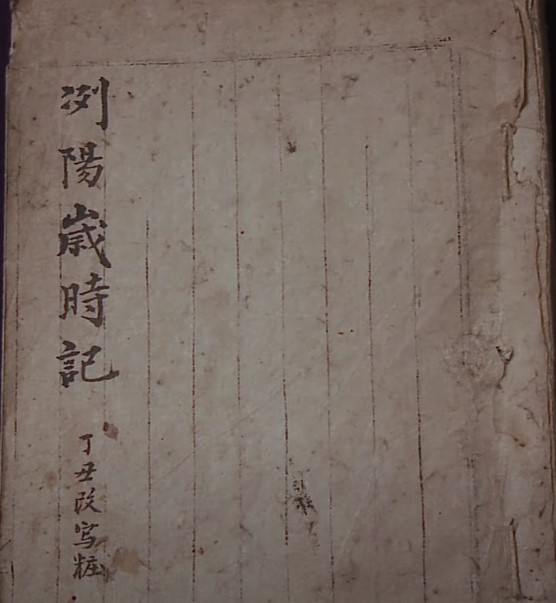 洌陽歲時記
丁丑改写粧